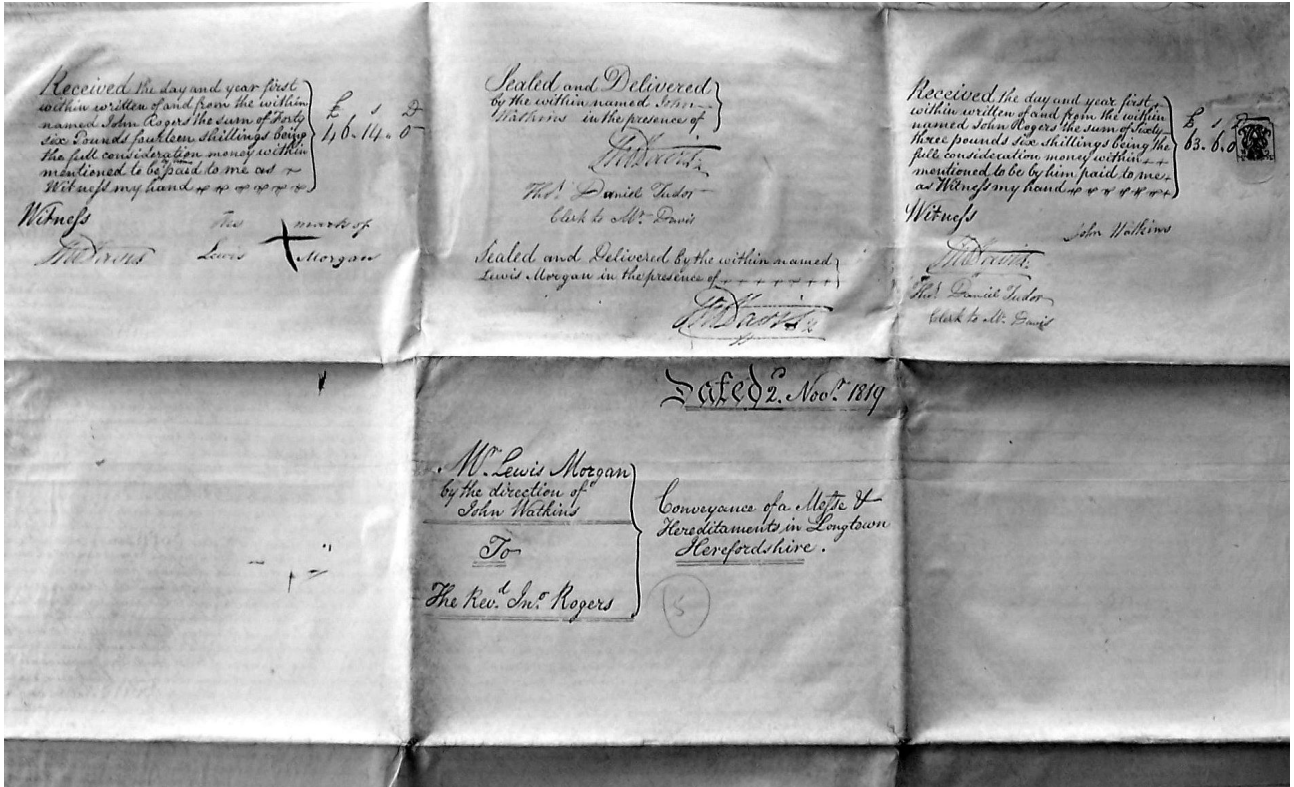 Received the day and year first
within written of and from the within
named John Rogers the sum of Forty
six Pounds fourteen shillings being
the full consideration money within
mentioned to be by him paid to me as
Witneſs my hand
£ s D
46-14-0
Witneſs
his mark of
Lewis Morgan
Sealed and Delivered
by the within named John
Watkins in the presence of
Thos. Daniel Tudor
Clerk to Mr. Davis
Sealed and Delivered by the within named
Lewis Morgan in the presence of
Received the day and year first
within written of and from the within
named John Rogers the sum of Sixty
three pounds six shillings being the
full consideration money within
mentioned to be by him paid to me
as Witneſs my hand
£ s D
63-6-0
Witneſs
John Watkins
Thos. Daniel Tudor
Clerk to Mr. Davis
Dated 2. Novr. 1819
Mr. Lewis Morgan
by the direction of
John Watkins
To
The Revd. Jno. Rogers
Conveyance of a Meſse &
Hereditaments in Longtown
Herefordshire.
5